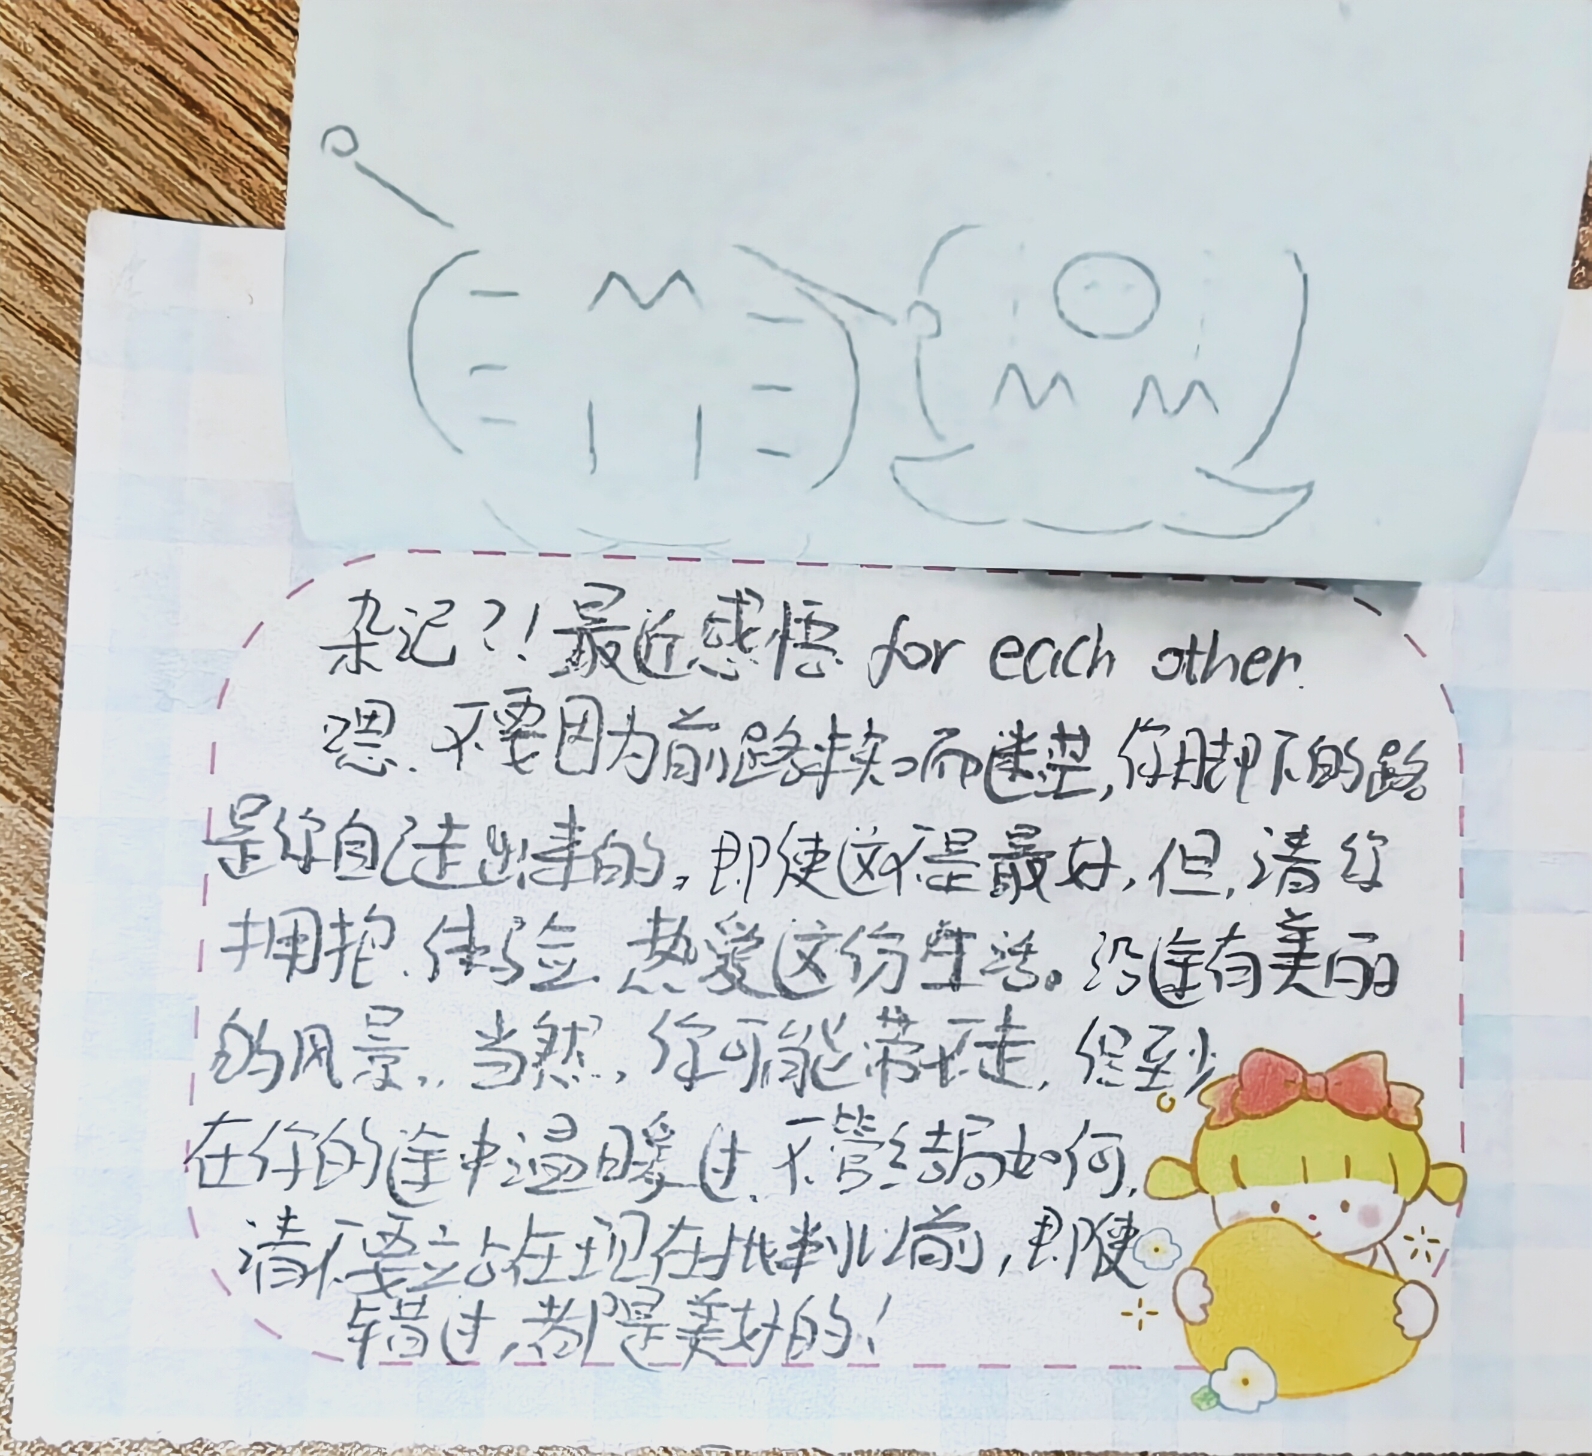 杂记?!最近感悟 for each other.
嗯.不要因为前路未知而迷茫,你脚下的路
是你自己走出来的,即使这不是最好,但,请你
拥抱.体验.热爱这份生活。沿途有美丽
的风景.,当然,你可能带不走,但至少
在你的途中温暖过.不管结局如何,
请不要站在现在批判以前,即使
错过,都是美好的!